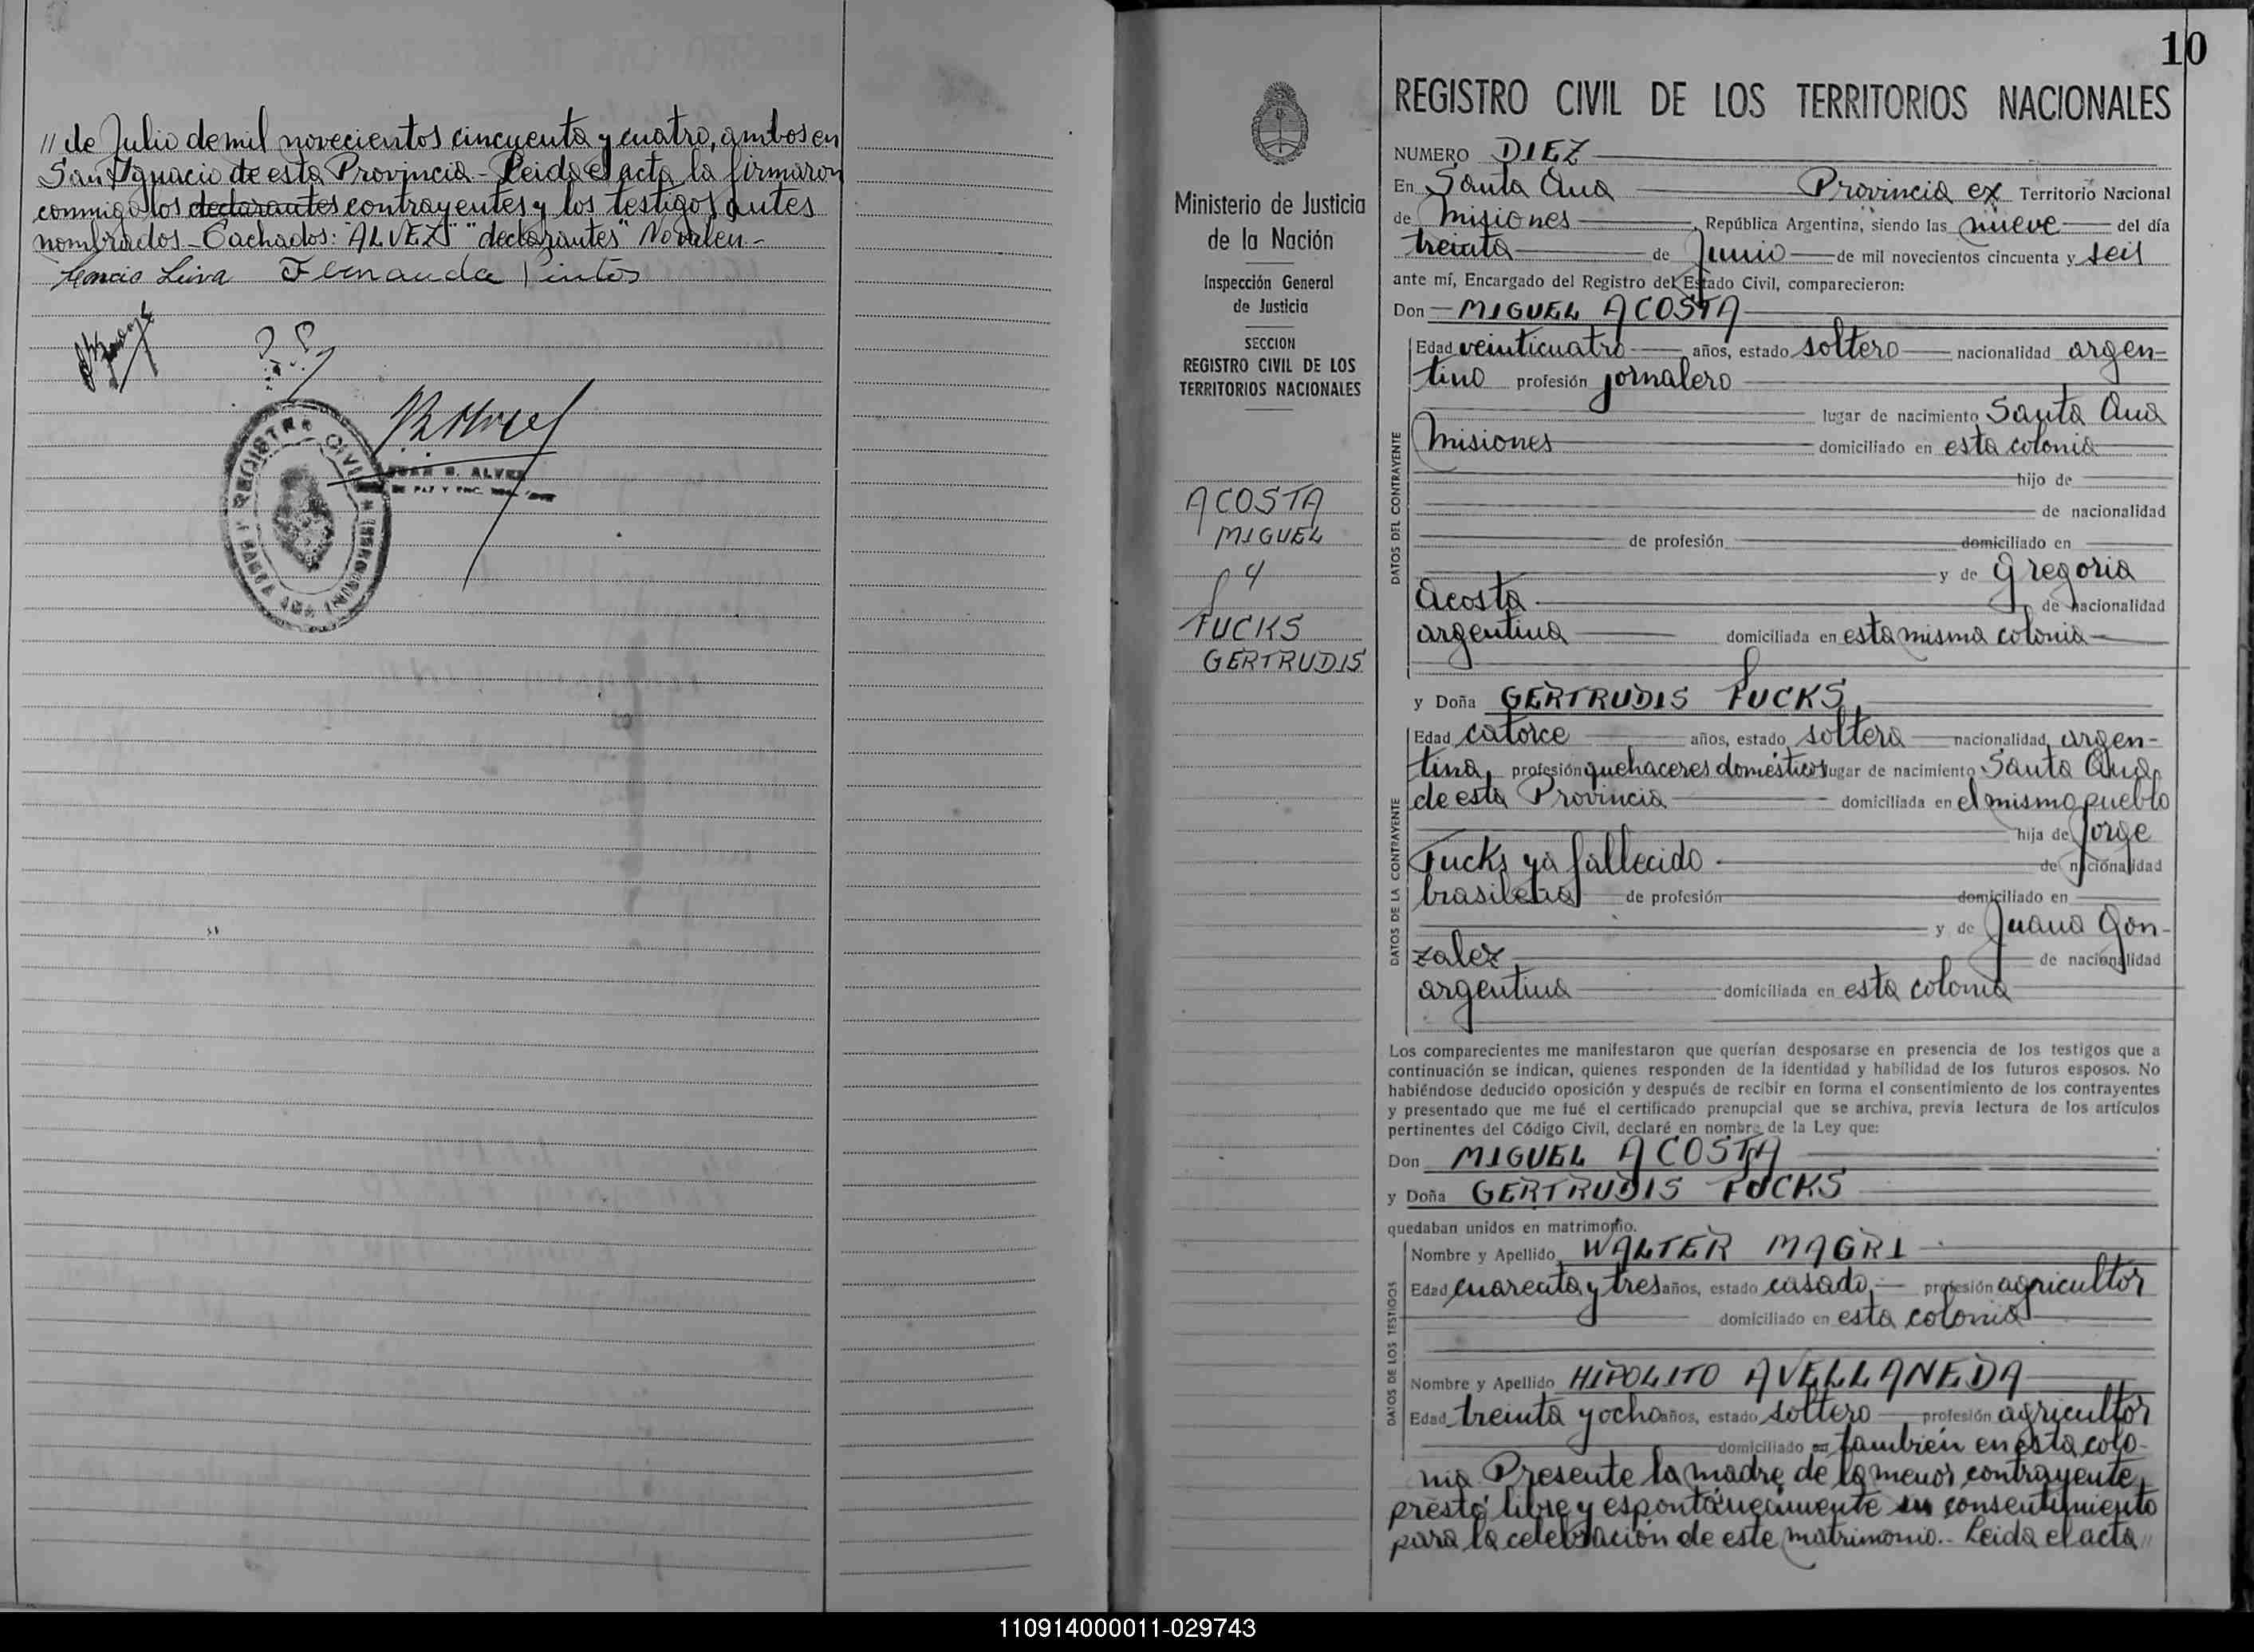 // de Julio de mil novecientos cincuenta y cuatro, ambos en
San Ignacio de esta Provincia - Leida el acta la firmaron
conmigo los declarantes contrayentes y los testigos antes
nombrados - Tachados: "ALVEZ" "declarantes" No valen -
Leiva Fernanda Pintos
REGISTRO CIVIL
JUAN B. ALVEZ
DE PAZ Y ENC.
10
REGISTRO CIVIL DE LOS TERRITORIOS NACIONALES
Ministerio de Justicia
de la Nación
Inspección General
de Justicia
SECCION
REGISTRO CIVIL DE LOS
TERRITORIOS NACIONALES
ACOSTA
MIGUEL
FUCKS
GERTRUDIS
NUMERO DIEZ
En Santa Ana Provincia ex Territorio Nacional
de Misiones, República Argentina, siendo las nueve del día
treinta de Junio de mil novecientos cincuenta y seis
ante mí, Encargado del Registro del Estado Civil, comparecieron:
Don MIGUEL ACOSTA
DATOS DEL CONTRAYENTE
Edad veinticuatro años, estado soltero nacionalidad argen-
tino profesión jornalero
lugar de nacimiento Santa Ana
Misiones domiciliado en esta colonia
hijo de
de nacionalidad
de profesión domiciliado en
y de Gregoria
Acosta de nacionalidad
argentina domiciliada en esta misma colonia
y Doña GERTRUDIS FUCKS
DATOS DE LA CONTRAYENTE
Edad catorce años, estado soltera nacionalidad argen-
tina profesión quehaceres domésticos lugar de nacimiento Santa Ana
de esta Provincia domiciliada en el mismo pueblo
hija de Jorge
Fucks ya fallecido de nacionalidad
brasilera de profesión domiciliado en
y de Juana Gon-
zalez de nacionalidad
argentina domiciliada en esta colonia
Los comparecientes me manifestaron que querían desposarse en presencia de los testigos que a
continuación se indican, quienes responden de la identidad y habilidad de los futuros esposos. No
habiéndose deducido oposición y después de recibir en forma el consentimiento de los contrayentes
y presentado que me fué el certificado prenupcial que se archiva, previa lectura de los artículos
pertinentes del Código Civil, declaré en nombre de la Ley que:
Don MIGUEL ACOSTA
y Doña GERTRUDIS FUCKS
quedaban unidos en matrimonio.
DATOS DE LOS TESTIGOS
Nombre y Apellido WALTER MAGRI
Edad cuarenta y tres años, estado casado profesión agricultor
domiciliado en esta colonia
Nombre y Apellido HIPOLITO AVELLANEDA
Edad treinta y ocho años, estado soltero profesión agricultor
domiciliado en también en esta colo-
nia. Presente la madre de la menor contrayente,
prestó libre y espontáneamente su consentimiento
para la celebración de este matrimonio.- Leida el acta //
110914000011-029743